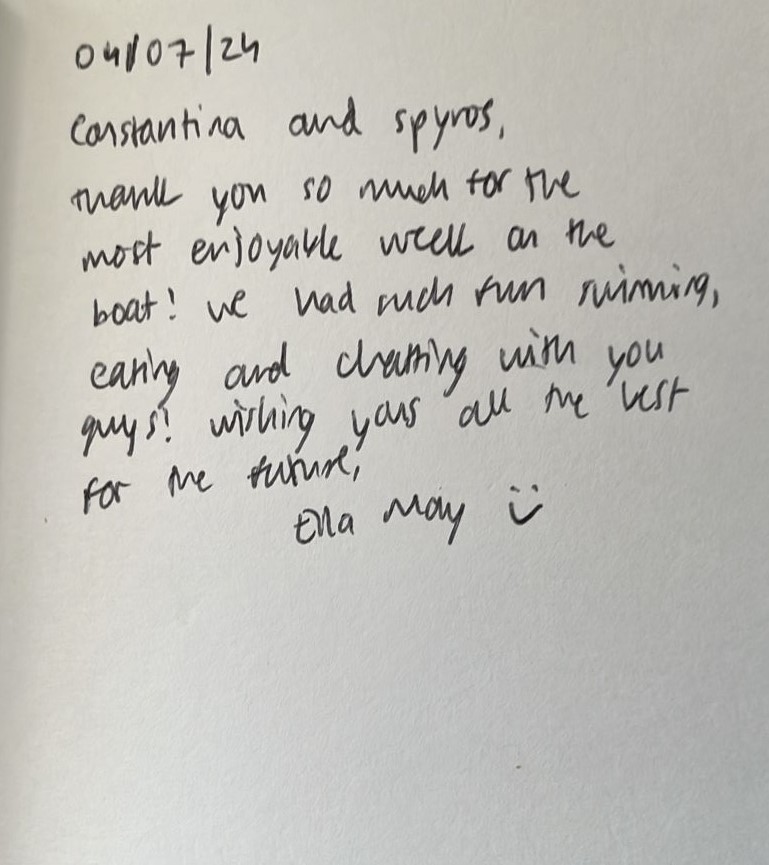 04/07/24
Constantina and spyros,
thank you so much for the
most enjoyable week on the
boat! we had such fun swimming,
eating and chatting with you
guys! wishing yous all the best
for the future,
Ella May :)